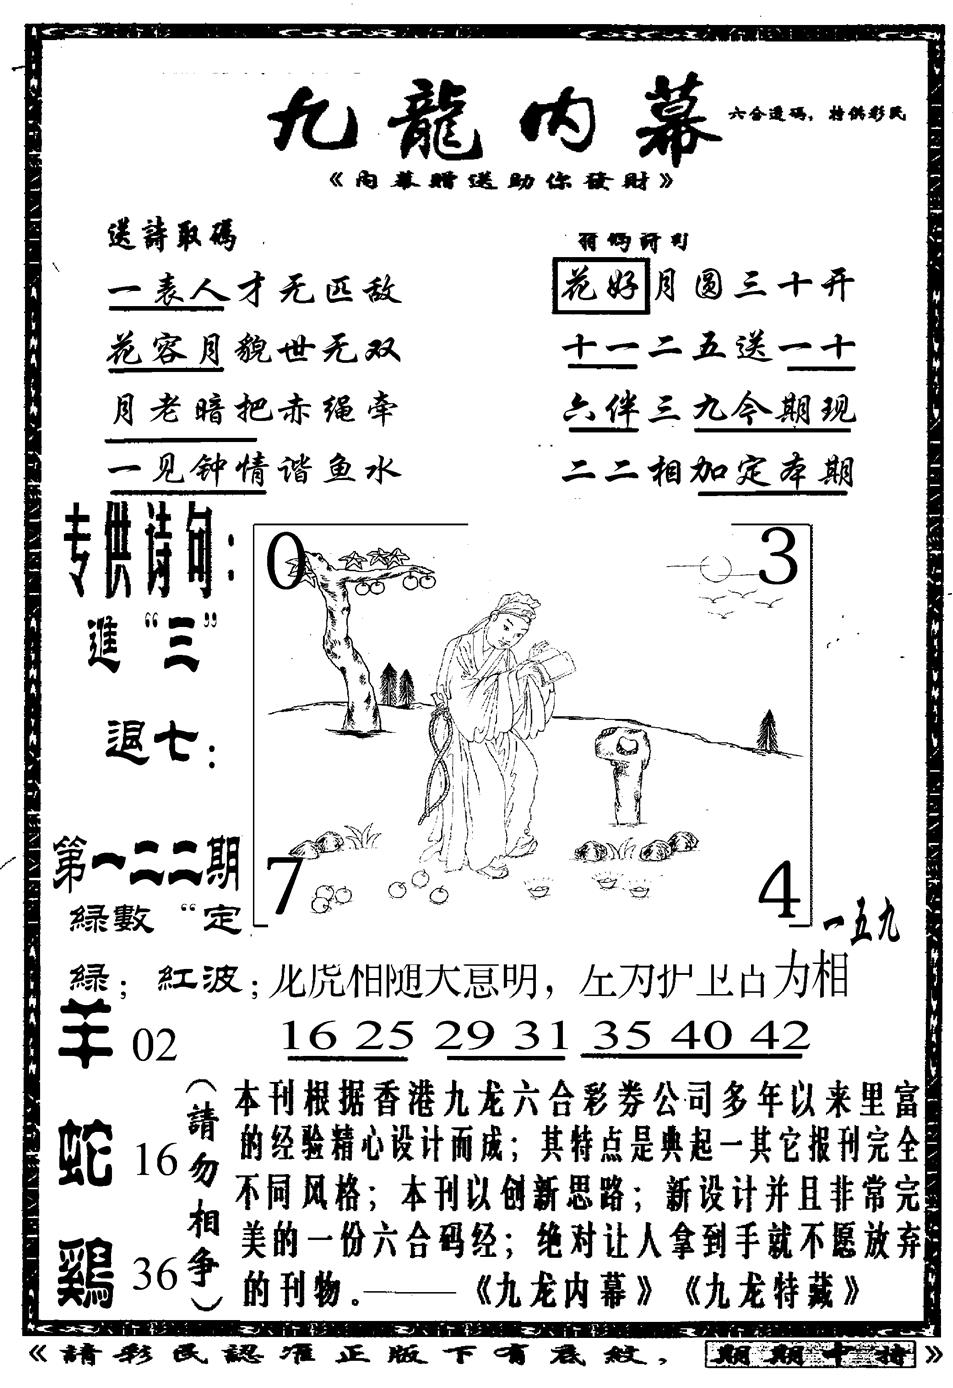 九龍内幕
六合透码，特供彩民
《内幕贈送助你發財》
送詩取碼
一表人才无匹敌
花容月貌世无双
月老暗把赤绳牵
一见钟情谐鱼水
花好月圆三十开
十一二五送一十
六伴三九今期现
二二相加定本期
专供诗句：
進“三”
退七：
第一二二期
綠數“定
綠；紅波；
0
3
7
4
一五九
龙虎相随大意明，左为护卫右为相
16 25 29 31 35 40 42
羊 02
蛇 16
鷄 36
（請勿相争）
本刊根据香港九龙六合彩券公司多年以来里富
的经验精心设计而成；其特点是典起一其它报刊完全
不同风格；本刊以创新思路；新设计并且非常完
美的一份六合码经；绝对让人拿到手就不愿放弃
的刊物。———《九龙内幕》《九龙特藏》
《請彩民認准正版下有底紋，期期中特》